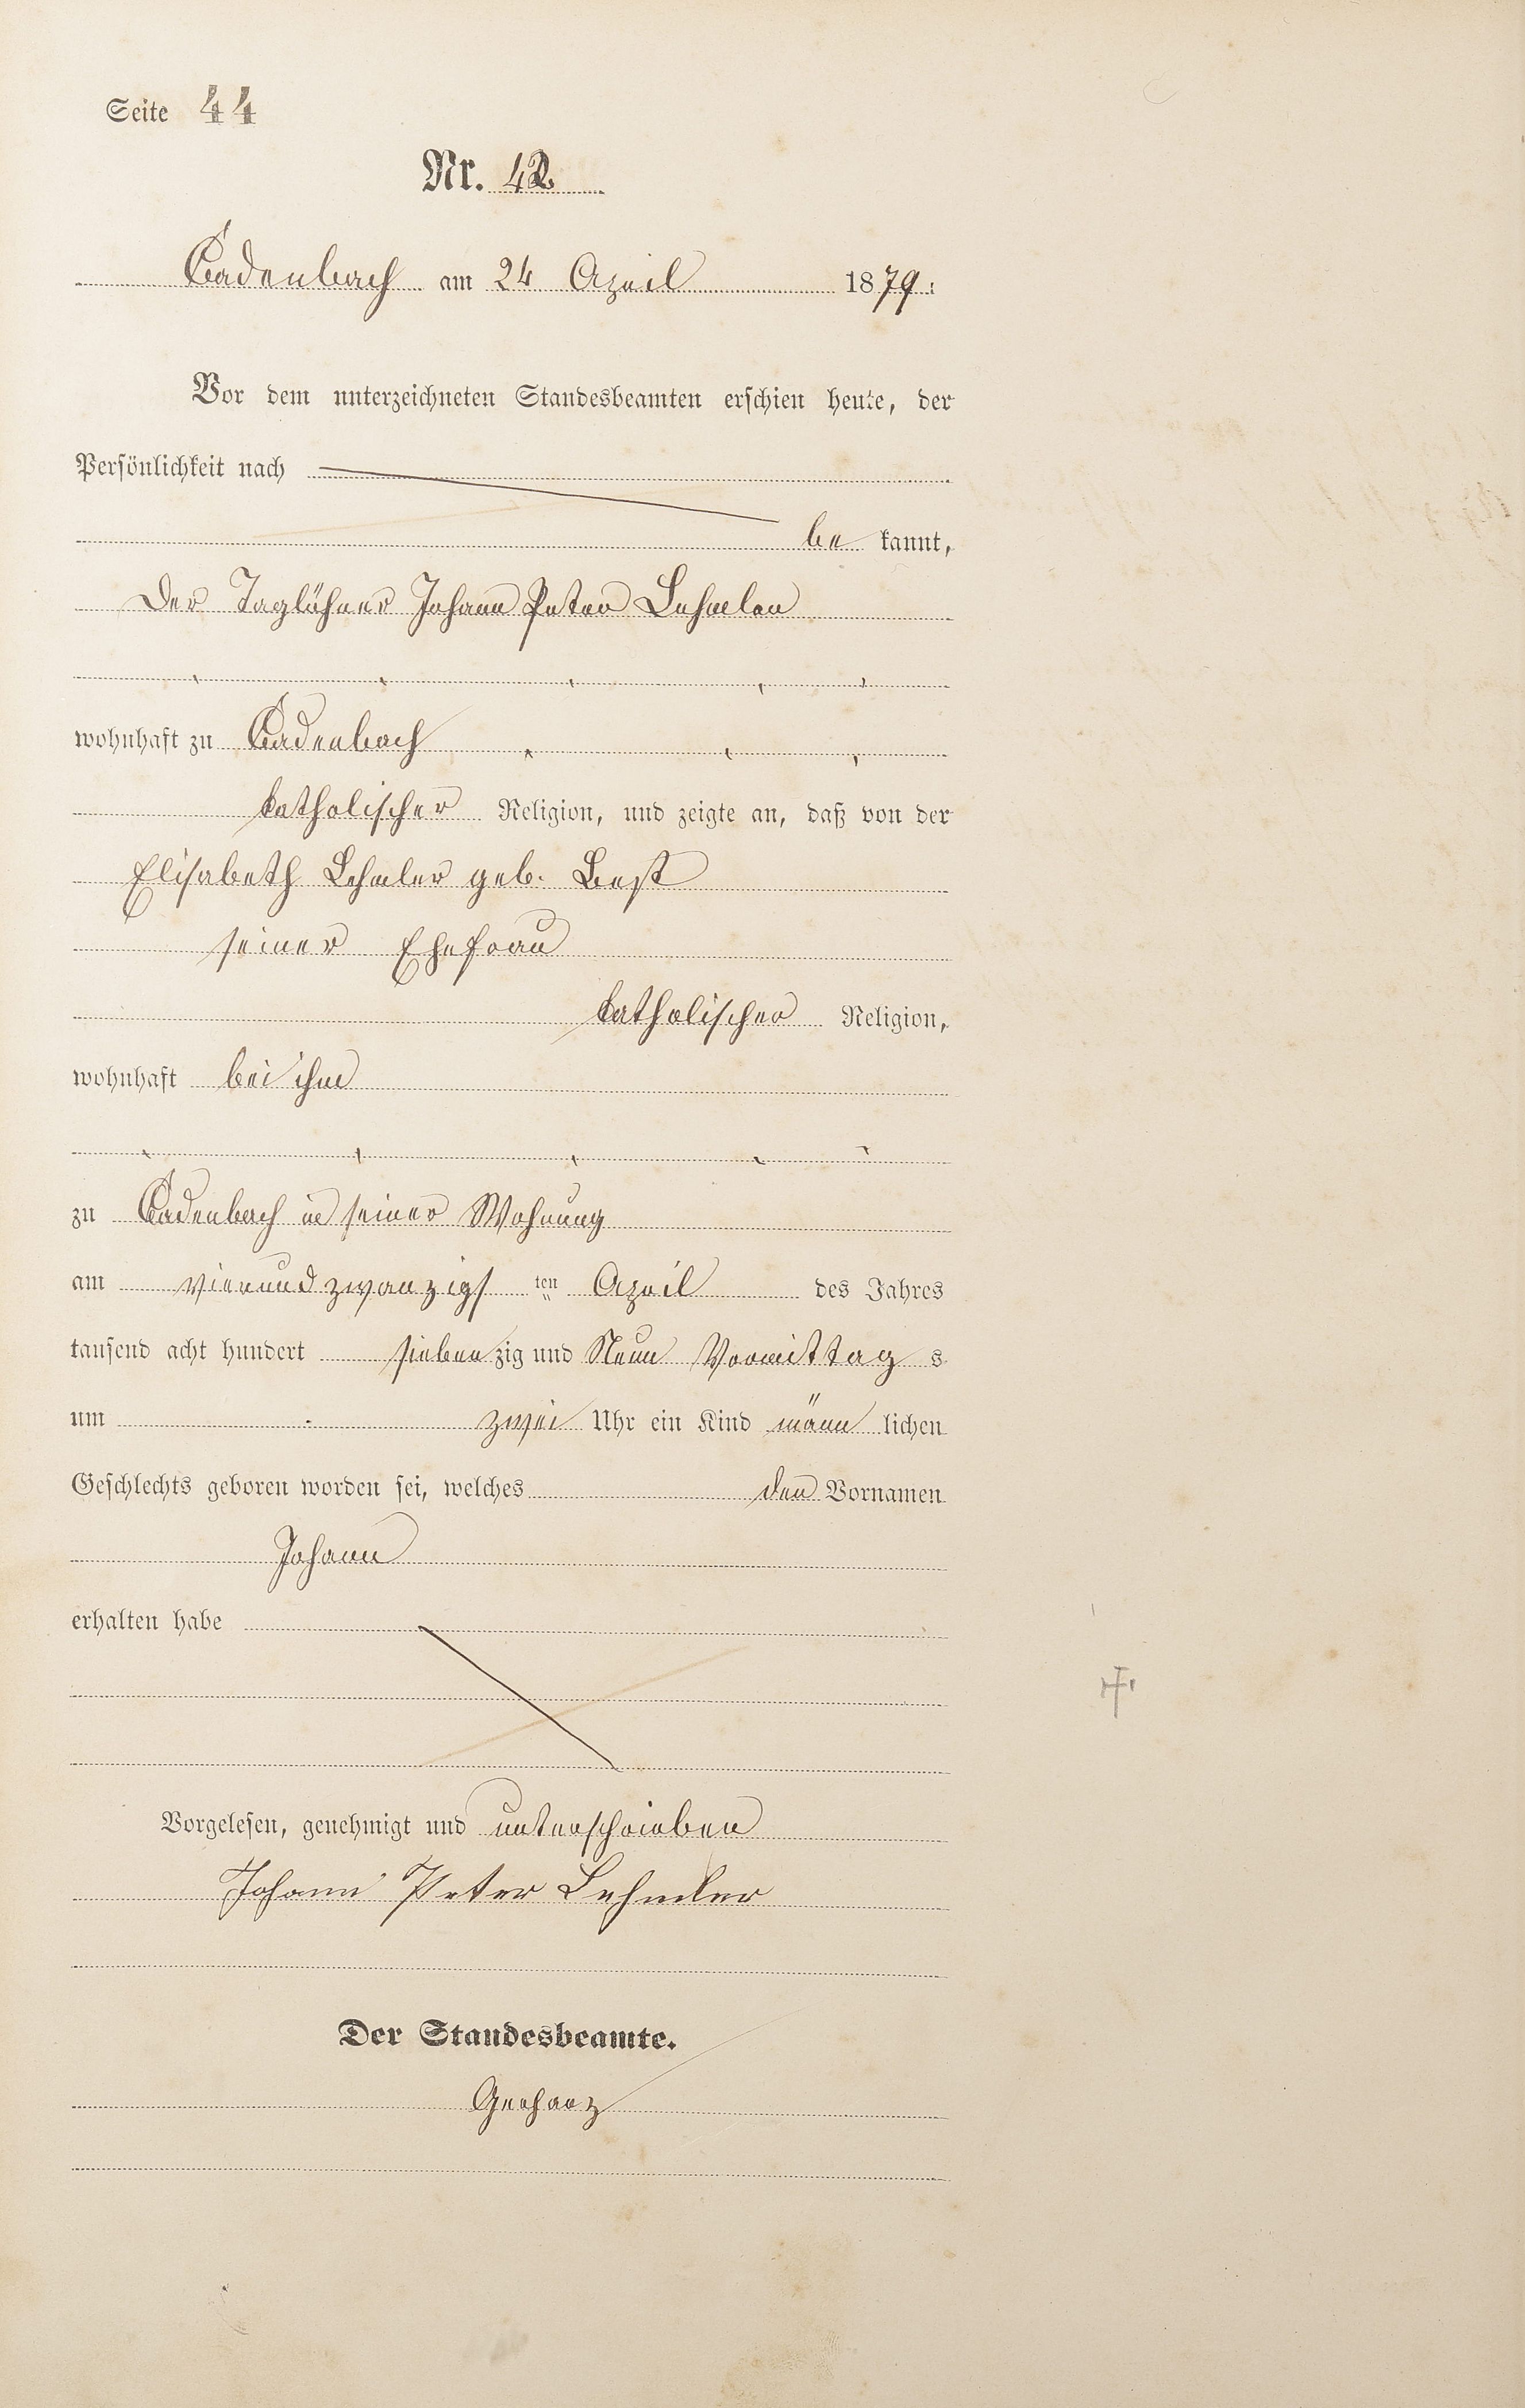 Seite 44
Nr. 42
Cadenbach am 24 April 1879.
Vor dem unterzeichneten Standesbeamten erschien heute, der
Persönlichkeit nach
be kannt,
der Taglöhner Johann Peter Lehmler
wohnhaft zu Cadenbach
katholischer Religion, und zeigte an, daß von der
Elisabeth Lehmler geb. Best
seiner Ehefrau
katholischer Religion,
wohnhaft bei ihm
zu Cadenbach in seiner Wohnung
am vierundzwanzigs ten April des Jahres
tausend acht hundert sieben zig und Neun Vormittag s
um zwei Uhr ein Kind männ lichen
Geschlechts geboren worden sei, welches den Vornamen
Johann
erhalten habe
Vorgelesen, genehmigt und unterschrieben
Johann Peter Lehmler
Der Standesbeamte.
Gerharz